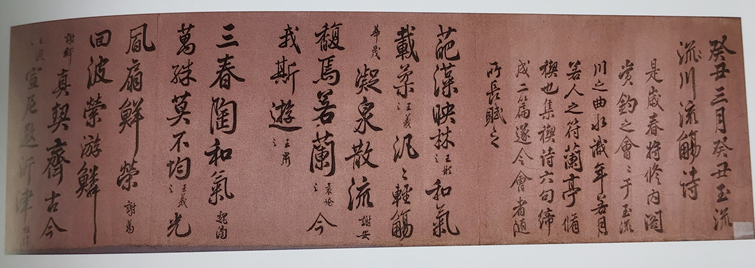 癸丑三月癸丑玉流
流川流觴詩
是歲春将修内閣
赏钓之會會于玉流
川之曲水識年若月
若人之符蘭亭脩
禊也集禊詩六句締
成二篇遂令會者随
所長賦之
葩藻映林 王彬之 和氣
載柔 王羲之 汎汎輕觴
華茂 凝泉散流 謝安
馥焉若蘭 袁嶠之 今
我斯遊 王肅之
三春陶和氣 魏滂
萬殊莫不均 王羲之 光
風扇鮮榮 謝萬
回波縈游鱗
謝繹 真契齊古今
宣尼遨沂津